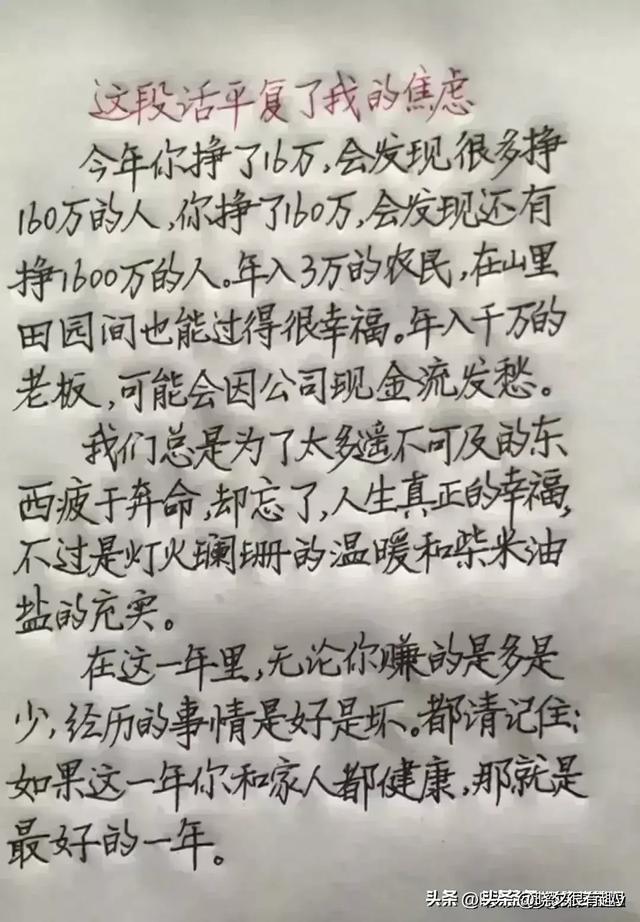 这段话平复了我的焦虑
今年你挣了16万,会发现很多挣
160万的人,你挣了160万,会发现还有
挣1600万的人。年入3万的农民,在山里
田园间也能过得很幸福。年入千万的
老板,可能会因公司现金流发愁。
我们总是为了太多遥不可及的东
西疲于奔命,却忘了,人生真正的幸福,
不过是灯火斓珊的温暖和柴米油
盐的充实。
在这一年里,无论你赚的是多是
少,经历的事情是好是坏。都请记住:
如果这一年你和家人都健康,那就是
最好的一年。
头条 @